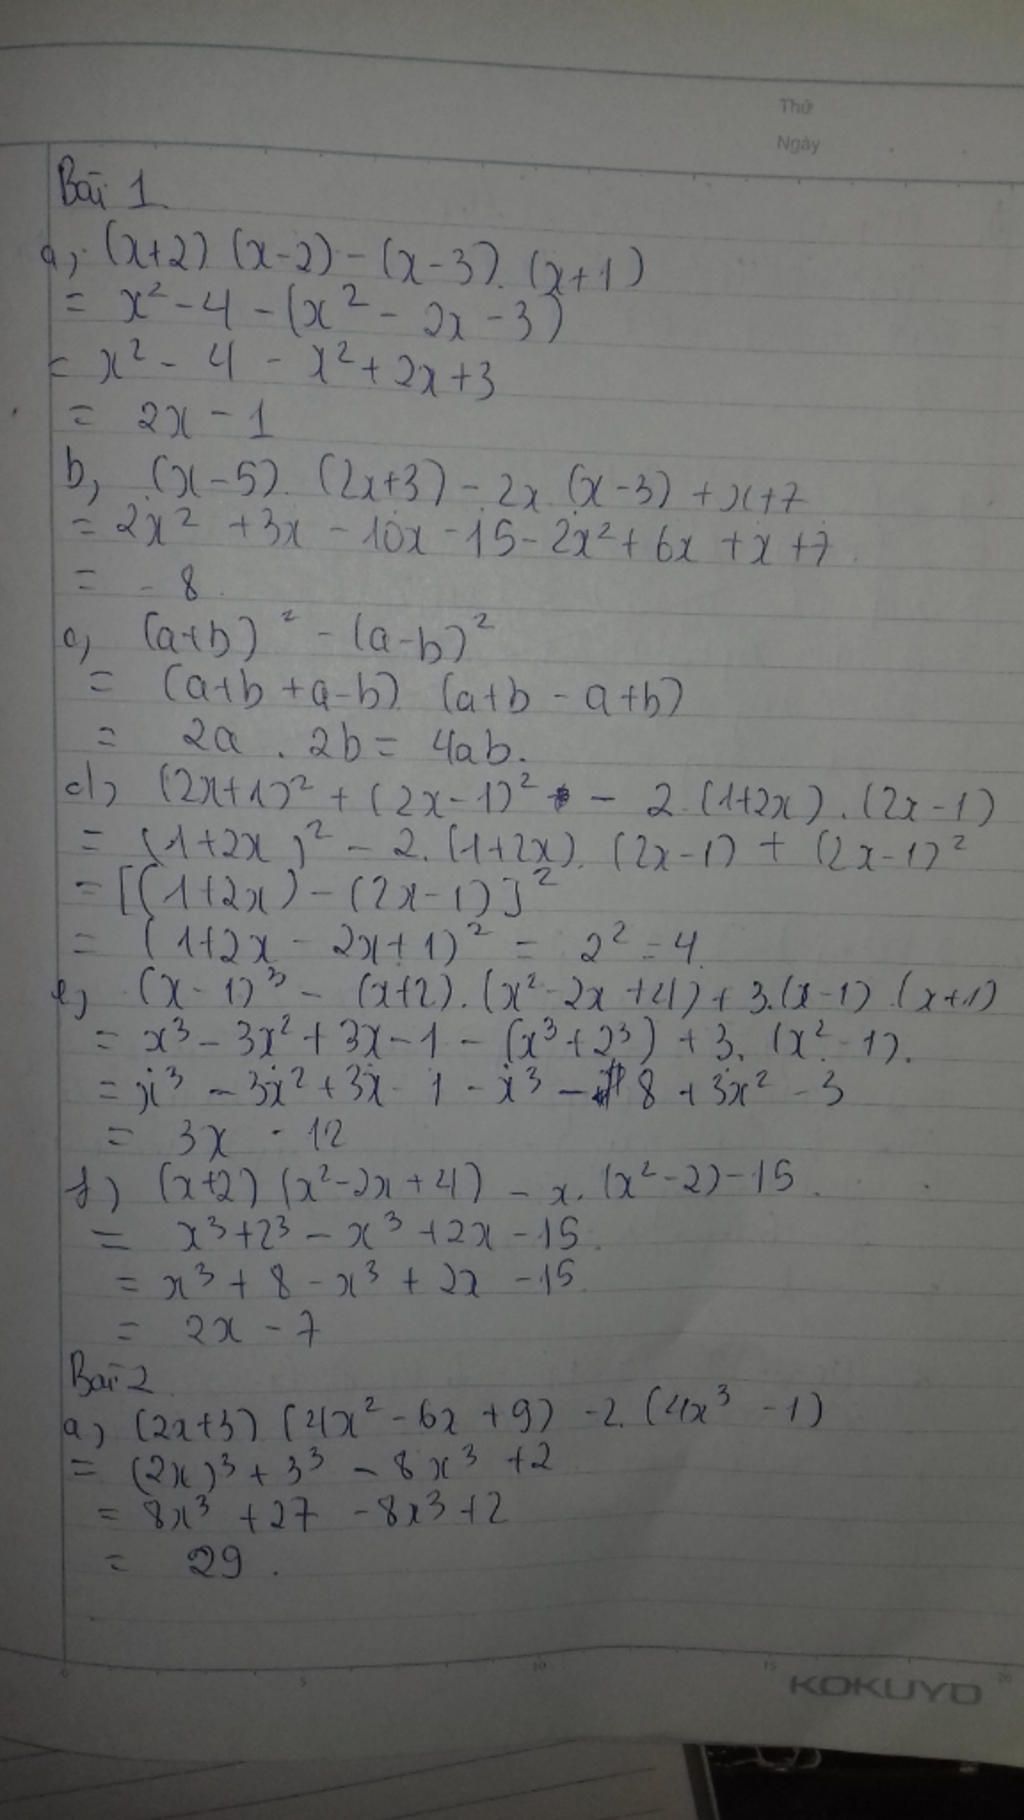 Thứ
Ngày
Bài 1.
a, (x+2) (x-2) - (x-3). (x+1)
= x² - 4 - (x² - 2x - 3)
= x² - 4 - x² + 2x + 3
= 2x - 1
b, (x-5). (2x+3) - 2x (x-3) + x+7
= 2x² + 3x - 10x - 15 - 2x² + 6x + x + 7
= - 8.
c, (a+b)² - (a-b)²
= (a+b + a-b). (a+b - a+b)
= 2a . 2b = 4ab.
d, (2x+1)² + (2x-1)² - 2.(1+2x).(2x-1)
= (1+2x)² - 2.(1+2x). (2x-1) + (2x-1)²
= [(1+2x) - (2x-1)]²
= (1+2x - 2x+1)² = 2² = 4.
e, (x-1)³ - (x+2).(x²-2x+4) + 3.(x-1).(x+1)
= x³ - 3x² + 3x - 1 - (x³+2³) + 3. (x²-1).
= x³ - 3x² + 3x - 1 - x³ - 8 + 3x² - 3
= 3x - 12
f, (x+2) (x²-2x+4) - x. (x²-2) - 15.
= x³+2³ - x³ + 2x - 15.
= x³ + 8 - x³ + 2x - 15
= 2x - 7
Bài 2
a, (2x+3) (4x² - 6x + 9) - 2. (4x³ - 1)
= (2x)³ + 3³ - 8x³ + 2
= 8x³ + 27 - 8x³ + 2
= 29.
0 5 10 15 20
KOKUYO